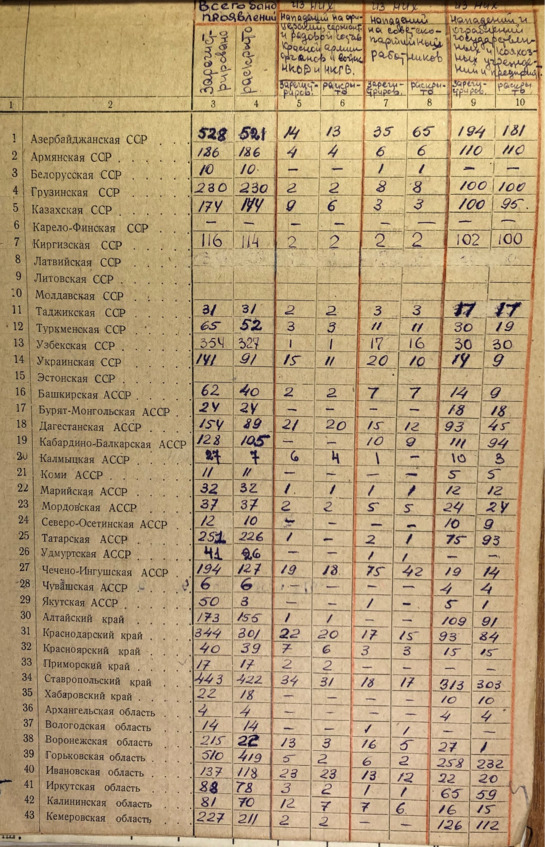 Всего банд проявлений
из них
из них
из них
Зарегистрировано
раскрыто
Нападений на офицерский, сержант. и рядовой состав Красной армии органов и войск НКВД и НКГБ.
Нападений на советско-партийных работников
Нападений и ограблений государственных и колхозных учрежден-ий и предприят.
Зареги-стриров.
раскры-то
Зареги-стриров.
раскры-то
Зарегис-триров.
раскры-то
1 2 3 4 5 6 7 8 9 10
1 Азербайджанская ССР 528 521 14 13 35 65 194 181
2 Армянская ССР 186 186 4 4 6 6 110 110
3 Белорусская ССР 10 10 — — 1 1 — —
4 Грузинская ССР 230 230 2 2 8 8 100 100
5 Казахская ССР 174 144 9 6 3 3 100 95
6 Карело-Финская ССР — — — — — — — —
7 Киргизская ССР 116 114 2 2 2 2 102 100
8 Латвийская ССР
9 Литовская ССР
10 Молдавская ССР
11 Таджикская ССР 31 31 2 2 3 3 17 17
12 Туркменская ССР 65 52 3 3 11 11 30 19
13 Узбекская ССР 354 327 1 1 17 16 30 30
14 Украинская ССР 141 91 15 11 20 10 14 9
15 Эстонская ССР
16 Башкирская АССР 62 40 2 2 7 7 14 9
17 Бурят-Монгольская АССР 24 24 — — — — 18 18
18 Дагестанская АССР 154 89 21 20 15 12 93 45
19 Кабардино-Балкарская АССР 128 105 — — 10 9 111 94
20 Калмыцкая АССР 27 7 6 4 1 — 10 3
21 Коми АССР 11 11 — — — — 5 5
22 Марийская АССР 32 32 1 1 1 1 12 12
23 Мордовская АССР 37 37 2 2 5 5 24 24
24 Северо-Осетинская АССР 12 10 — — — — 10 9
25 Татарская АССР 251 226 1 — 2 1 75 93
26 Удмуртская АССР 41 26 1 1 — —
27 Чечено-Ингушская АССР 194 127 19 18 75 42 19 14
28 Чувашская АССР 6 6 — — — — 4 4
29 Якутская АССР 50 3 — — 1 — 5 1
30 Алтайский край 173 155 1 1 — — 109 91
31 Краснодарский край 344 301 22 20 17 15 93 84
32 Красноярский край 40 39 7 6 3 3 15 15
33 Приморский край 17 17 2 2 — — — —
34 Ставропольский край 443 422 34 31 18 17 313 303
35 Хабаровский край 22 18 — — — — 10 10
36 Архангельская область 4 4 — — — — 4 4
37 Вологодская область 14 14 — — 1 1 — —
38 Воронежская область 215 22 13 3 16 5 27 1
39 Горьковская область 510 419 5 2 6 2 258 232
40 Ивановская область 137 118 23 23 13 12 22 20
41 Иркутская область 88 78 3 2 1 1 65 59
42 Калининская область 81 70 12 7 7 6 16 15
43 Кемеровская область 227 211 2 2 — — 126 112